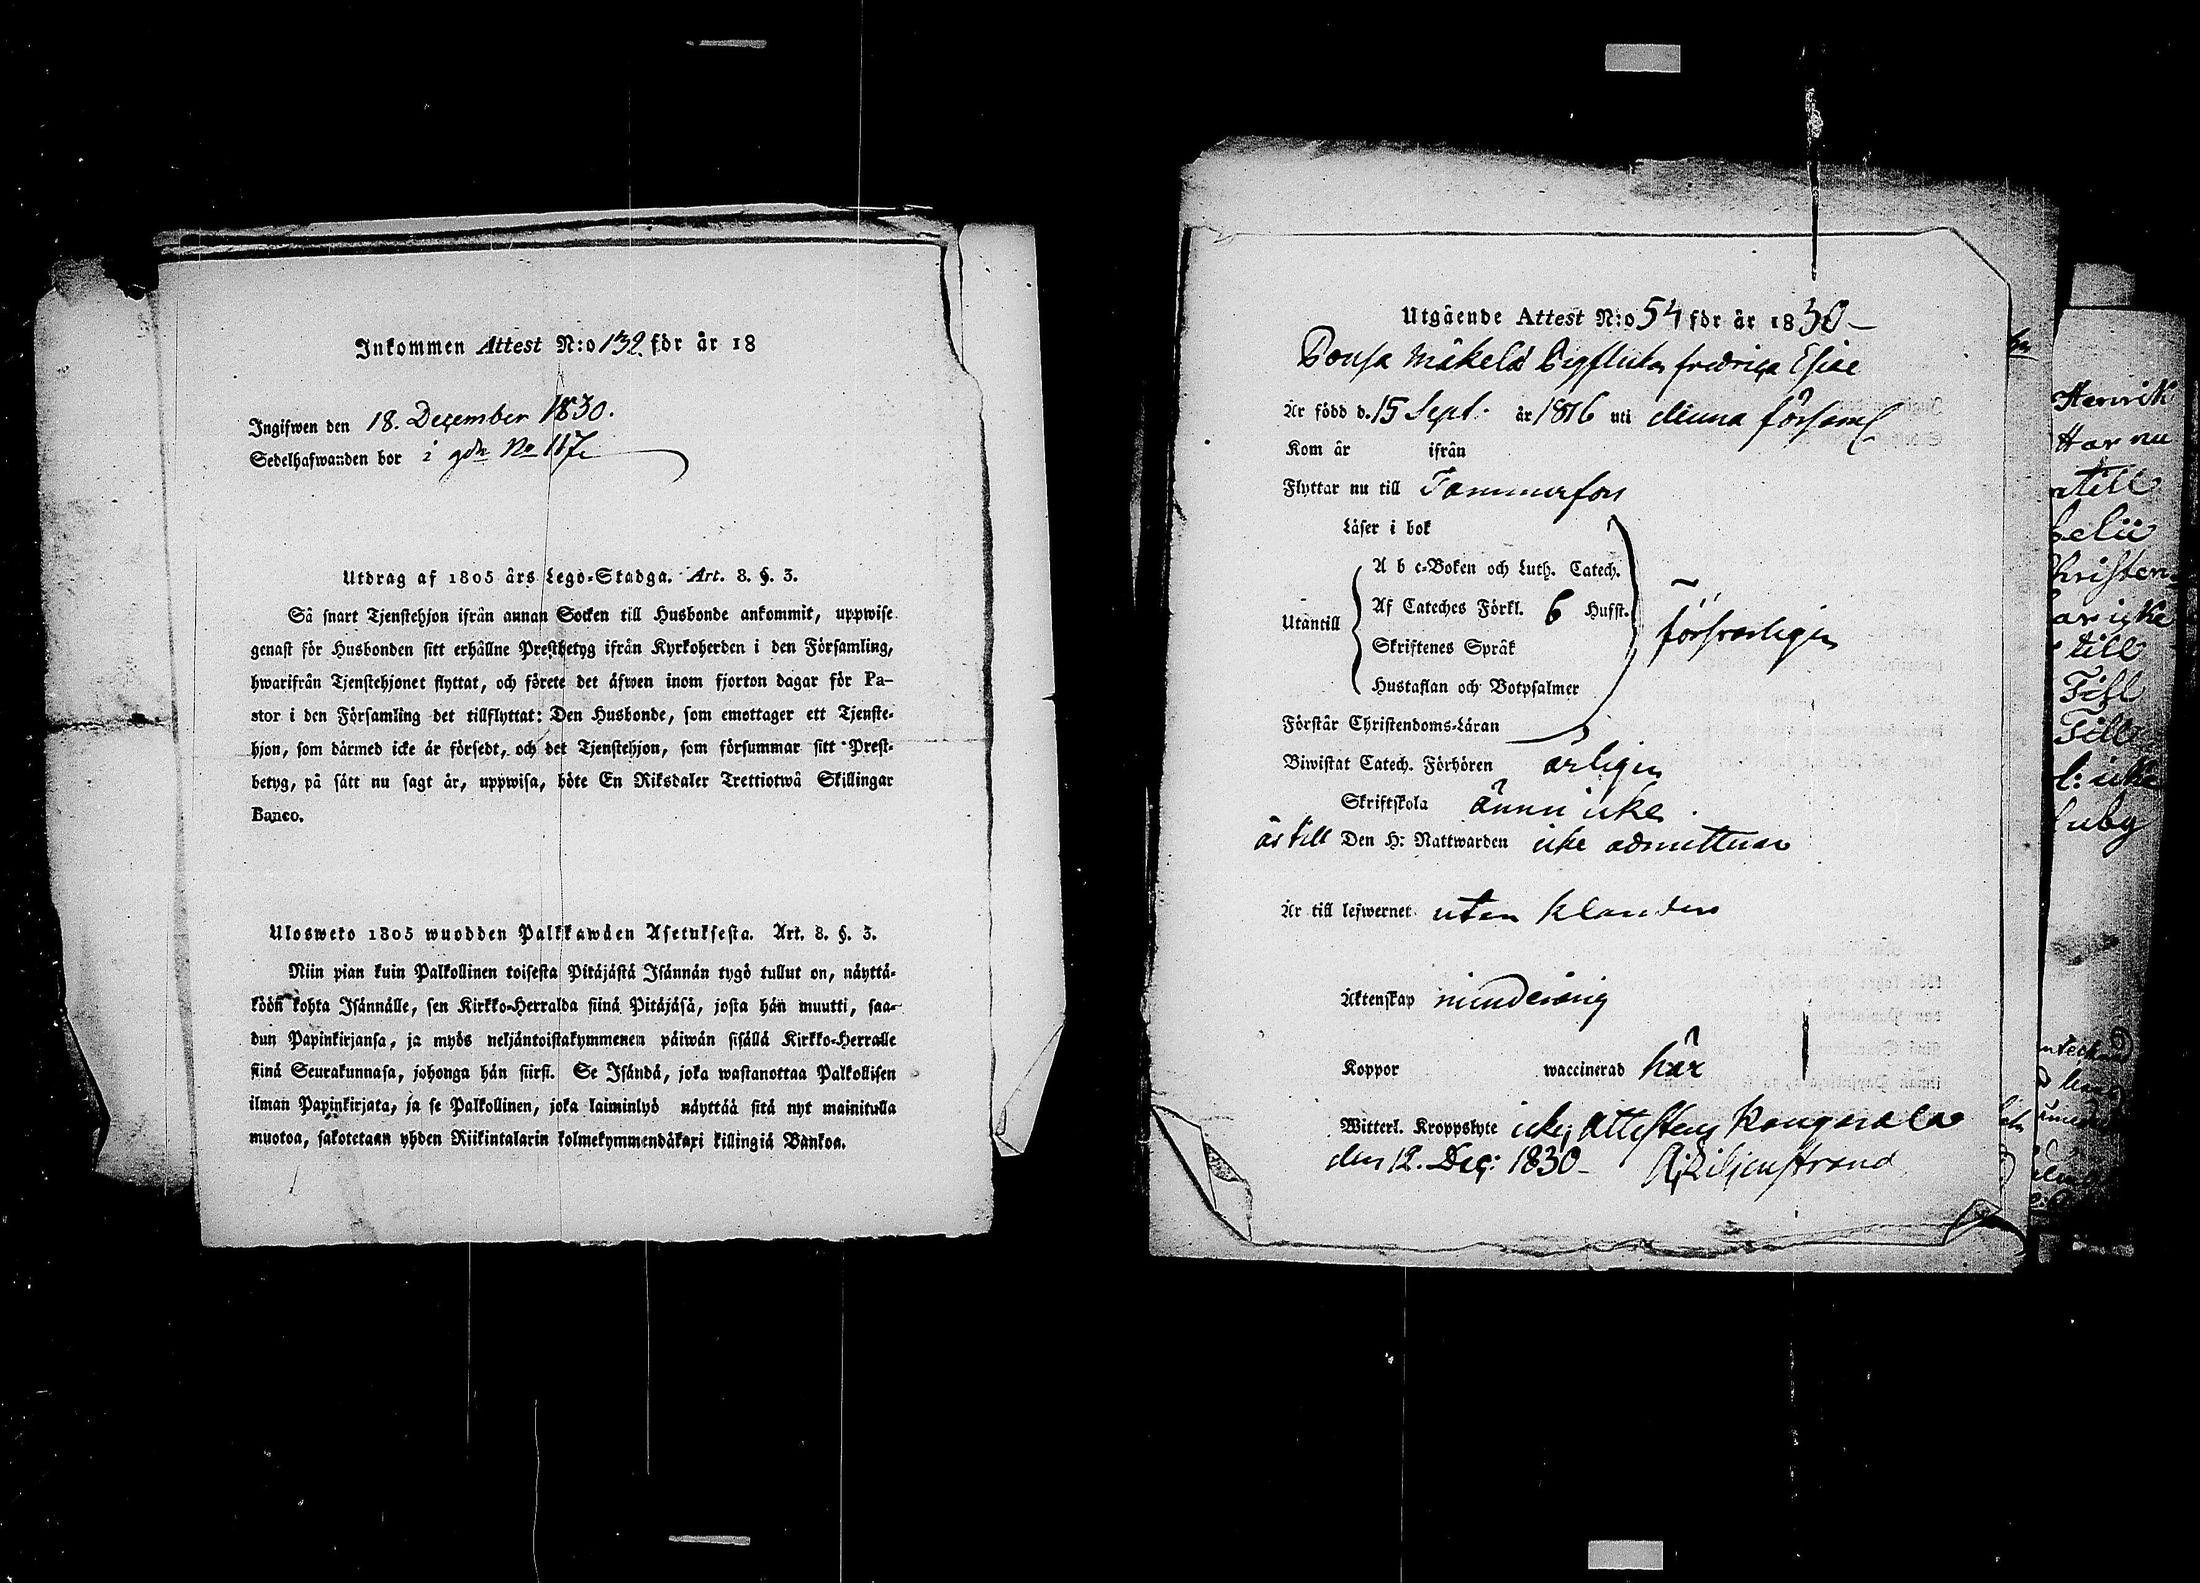 Inkommen Attest N:o 132. för år 18
Ingifwen den 18. December 1830.
Sedelhafwanden bor i gdn No 117
Utdrag af 1805 års Lego-Stadga. Art. 8. §. 3.
Så snart Tjenstehjon ifrån annan Socken till Husbonde ankommit, uppwise
genast för Husbonden sitt erhållne Prestbetyg ifrån Kyrkoherden i den Församling,
hwarifrån Tjenstehjonet flyttat, och förete det äfwen inom fjorton dagar för Pa-
stor i den Församling det tillflyttat: Den Husbonde, som emottager ett Tjenste-
hjon, som därmed icke är försedt, och det Tjenstehjon, som försummar sitt Prest-
betyg, på sätt nu sagt är, uppwisa, böte En Riksdaler Trettiotwå Skillingar
Banco.
Ulosweto 1805 wuodden Palkkawäen Asetuksesta. Art. 8. §. 3.
Niin pian kuin Palkollinen toisesta Pitäjästä Isännän tygö tullut on, näyttä-
köön kohta Isännälle, sen Kirkko-Herralda siinä Pitäjäsä, josta hän muutti, saa-
dun Papinkirjansa, ja myös neljäntoistakymmenen päiwän sisällä Kirkko-Herralle
siinä Seurakunnasa, johonga hän siirsi. Se Isändä, joka wastanottaa Palkollisen
ilman Papinkirjata, ja se Palkollinen, joka laiminlyö näyttää sitä nyt mainitulla
muotoa, sakotetaan yhden Riikintalarin kolmekymmendäkaxi killingiä Bankoa.
Utgående Attest N:o 54 för år 1830 –
Mäkelä fredrica
Är född d. 15 Sept. år 1816 uti denna församl
Kom år ifrån
Flyttar nu till Tammerfors
Läser i bok
A b c-Boken och Luth. Catech.
Utantill Af Cateches Förkl. 6 Hufst. försvarligen
Skriftenes Språk
Hustaflan och Botpsalmer
Förstår Christendoms-Läran
Biwistat Catech. Förhören årligen
Skriftskola ännu icke.
är till Den H: Nattwarden icke admitterad
Är till lefwernet utan klander
Äktenskap minderårig
Koppor waccinerad här
Witterl. Kroppslyte icke, attesteras Kangasala
den 12. Dec: 1830 – Liljenstrand
Henrik
Har nu
till
icke
till
Till
Till